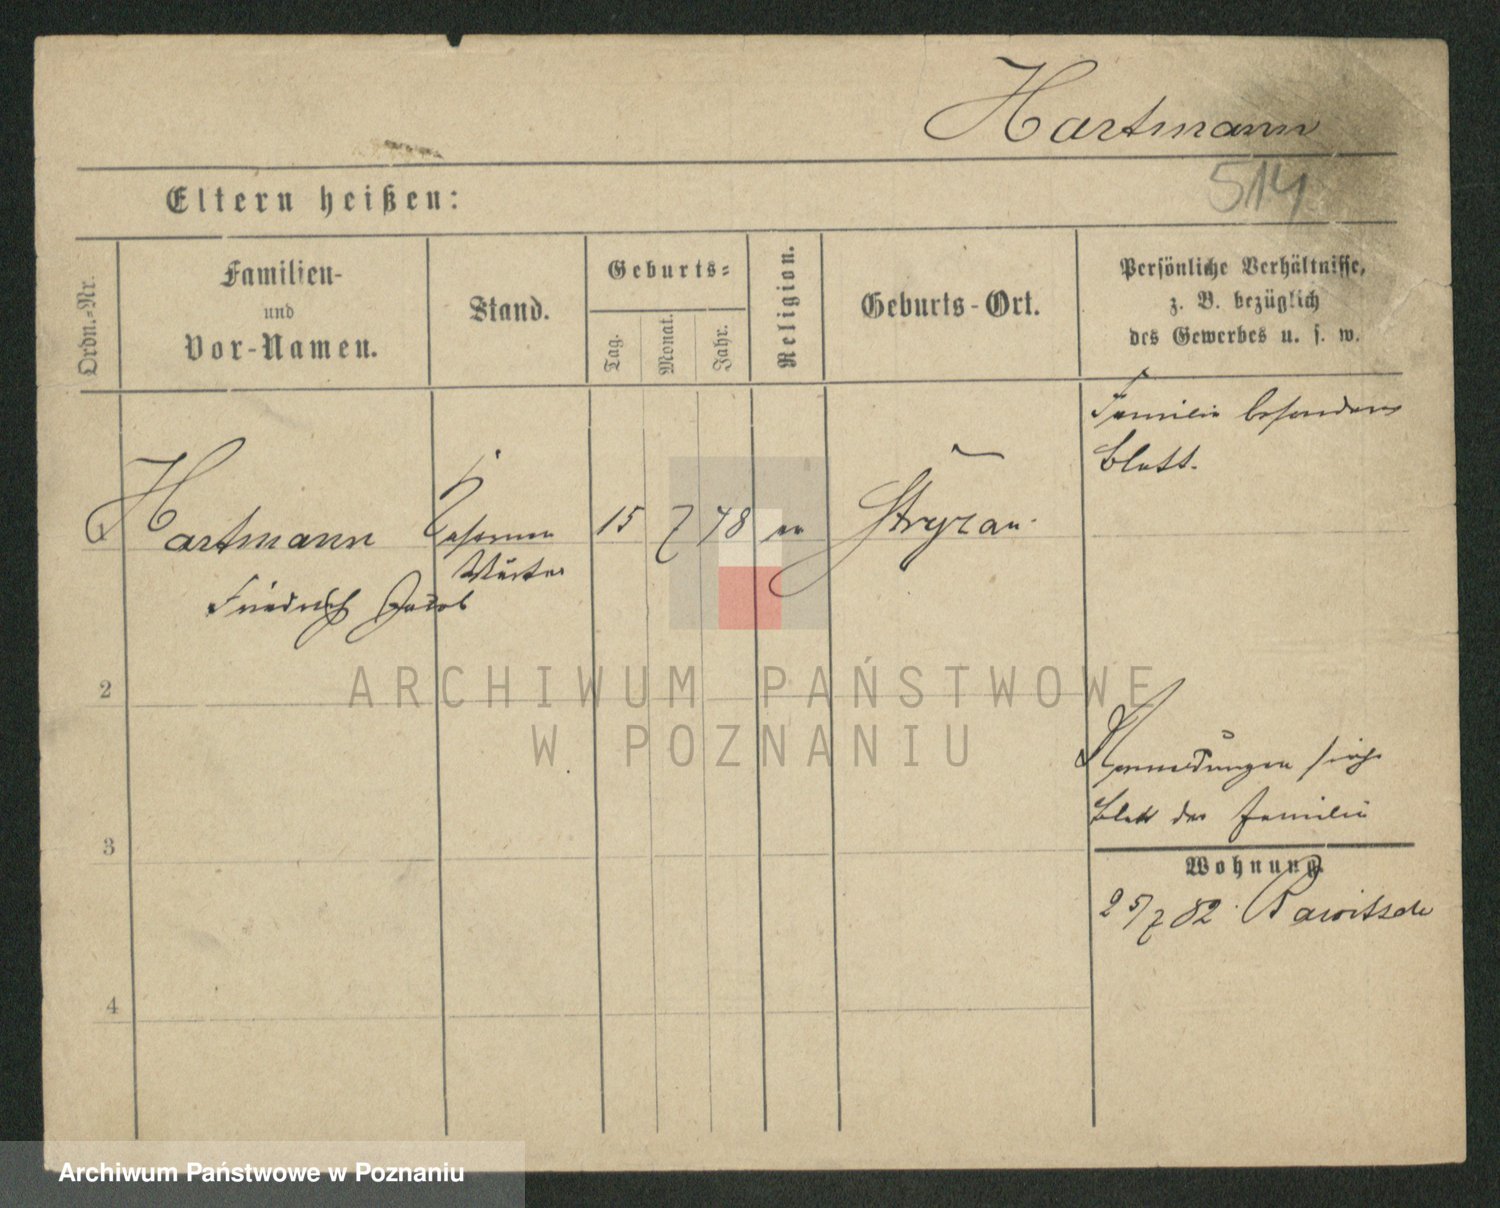 Hartmann
514
Eltern heißen:
Ordn.-Nr.
Familien-
und
Vor-Namen.
Stand.
Geburts-
Tag.
Monat.
Jahr.
Religion.
Geburts-Ort.
Persönliche Verhältnisse,
z. B. bezüglich
des Gewerbes u. s. w.
Familie besonderes
Blatt.
1
Hartmann
Friedrich Jacob
Kasernen
Wärter
15
7
48
ev
Stryzau
2
3
4
siehe
Blatt der Familie
Wohnung.
25/7 82. Rawitsch
ARCHIWUM PAŃSTWOWE
W POZNANIU
Archiwum Państwowe w Poznaniu